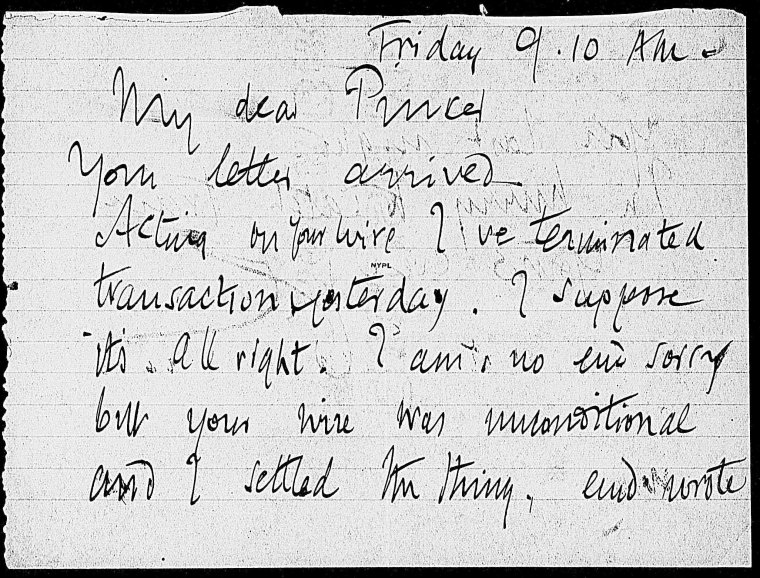 Friday 9.10 AM.
My dear Pinker
Your letter arrived
Acting on your wire I've terminated
NYPL
transaction yesterday. I suppose
it's all right. I am no end sorry
but your wire was unconditional
and I settled the thing, and wrote